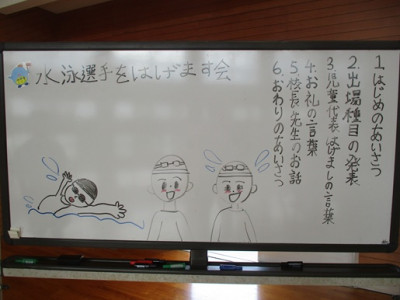 水泳選手をはげます会
1.はじめのあいさつ
2.出場種目の発表
3.児童代表はげましの言葉
4.お礼の言葉
5.校長先生のお話
6.おわりのあいさつ